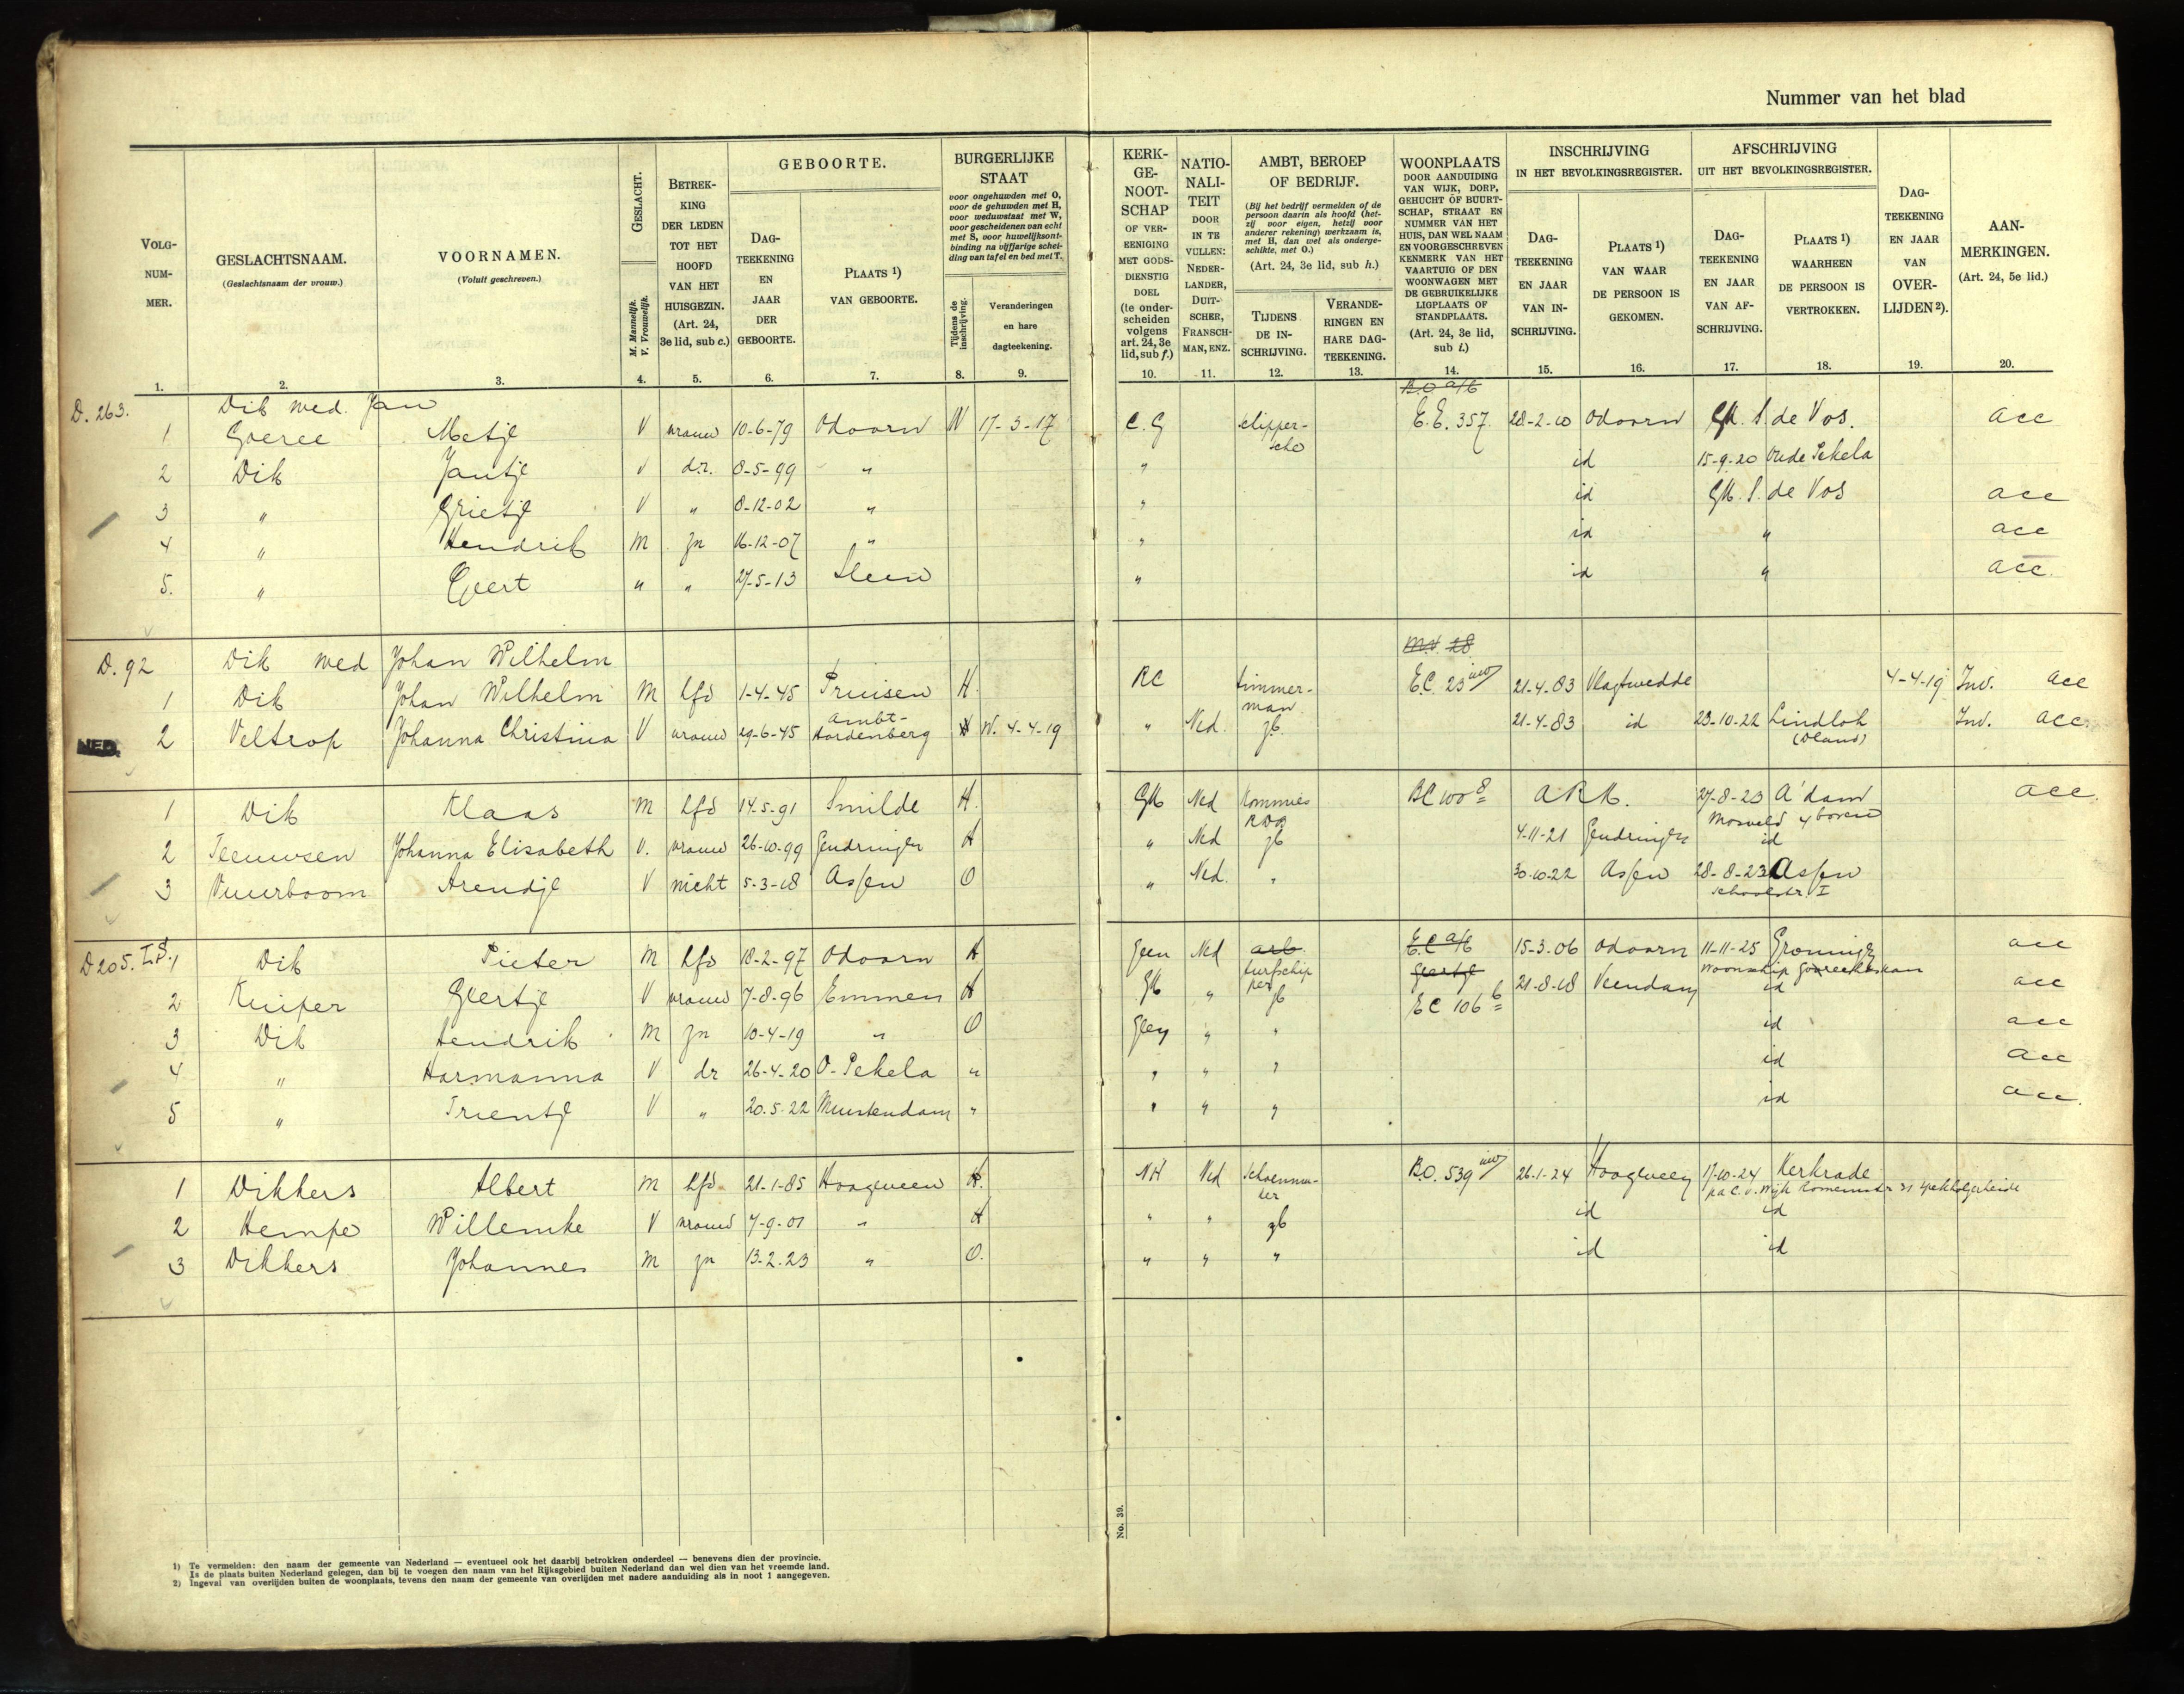 Nummer van het blad
VOLG-NUM-MER. GESLACHTSNAAM. (Geslachtsnaam der vrouw.) VOORNAMEN. (Voluit geschreven.) GESLACHT. M. Mannelijk. V. Vrouwelijk. BETREK-KING DER LEDEN TOT HET HOOFD VAN HET HUISGEZIN. (Art. 24, 3e lid, sub c.) GEBOORTE. DAG-TEEKENING EN JAAR DER GEBOORTE. PLAATS 1) VAN GEBOORTE.
BURGERLIJKE STAAT voor ongehuwden met O, voor de gehuwden met H, voor weduwstaat met W, voor gescheidenen van echt met S, voor huwelijksont-binding na vijfjarige schei-ding van tafel en bed met T. Tijdens de inschrijving. Veranderingen en hare dagteekening.
KERK-GE-NOOT-SCHAP OF VER-EENIGING MET GODS-DIENSTIG DOEL (te onder-scheiden volgens art. 24, 3e lid, sub f.) NATIO-NALI-TEIT DOOR IN TE VULLEN: NEDER-LANDER, DUIT-SCHER, FRANSCH-MAN, ENZ.
AMBT, BEROEP OF BEDRIJF. (Bij het bedrijf vermelden of de persoon daarin als hoofd (het-zij voor eigen, hetzij voor anderer rekening) werkzaam is, met H, dan wel als onderge-schikte, met O.) (Art. 24, 3e lid, sub h.) TIJDENS DE IN-SCHRIJVING. VERANDE-RINGEN EN HARE DAG-TEEKENING.
WOONPLAATS DOOR AANDUIDING VAN WIJK, DORP, GEHUCHT OF BUURT-SCHAP, STRAAT EN NUMMER VAN HET HUIS, DAN WEL NAAM EN VOORGESCHREVEN KENMERK VAN HET VAARTUIG OF DEN WOONWAGEN MET DE GEBRUIKELIJKE LIGPLAATS OF STANDPLAATS. (Art. 24, 3e lid, sub i.)
INSCHRIJVING IN HET BEVOLKINGSREGISTER. DAG-TEEKENING EN JAAR VAN IN-SCHRIJVING. PLAATS 1) VAN WAAR DE PERSOON IS GEKOMEN.
AFSCHRIJVING UIT HET BEVOLKINGSREGISTER. DAG-TEEKENING EN JAAR VAN AF-SCHRIJVING. PLAATS 1) WAARHEEN DE PERSOON IS VERTROKKEN.
DAG-TEEKENING EN JAAR VAN OVER-LIJDEN 2). AAN-MERKINGEN. (Art. 24, 5e lid.)
1. 2. 3. 4. 5. 6. 7. 8. 9. 10. 11. 12. 13. 14. 15. 16. 17. 18. 19. 20.
D. 263. Dik wed. Jan B.O. a/b
1 Goeree Metje V vrouw 10-6-79 Odoorn W 17-3-17 C.G schipper-sche E.E. 357 28-2-10 Odoorn GK. S. de Vos. acc
2 Dik Jantje V dr. 8-5-99 " " id 15-9-20 Oude Pekela
3 " Grietje V " 8-12-02 " " id GK. S. de Vos acc
4 " Hendrik M zn 16-12-07 " " id " acc
5. " Geert " " 27-5-13 Sleen " id " acc.
D. 92 Dik wed Johan Wilhelm M.V. 28
1 Dik Johan Wilhelm M hfd 1-4-45 Pruisen H. RC timmer-man E.C. 23 21-4-83 Vlagtwedde 4-4-19 Inv. acc
NED. 2 Veltrop Johanna Christina V vrouw 29-6-45 Ambt-Hardenberg H W. 4-4-19 " Ned. zb. 21-4-83 id 23-10-22 Lindloh (Dland) Inv. acc.
1 Dik Klaas M hfd 14-5-91 Smilde H. GK Ned Kommies RDB BC 100 8 A R K. 27-8-23 A'dam Mosveld 4 boven acc.
2 Teeuwsen Johanna Elisabeth V. vrouw 26-10-99 Gendringen H " Ned zb 4-11-21 Gendringen id
3 Vuurboom Arendje V nicht 5-3-18 Assen O " Ned. " 30-10-22 Assen 28-8-23 Assen Schoolstr. I
D 205. I.S. 1 Dik Pieter M hfd 18-2-97 Odoorn H Geen Ned arb. turfschipper E.C a/b 15-3-06 Odoorn 11-11-25 Groningen Woonschip acc
2 Kuiper Geertje V vrouw 7-8-96 Emmen H GK " zb Geertje EC 106 b 21-8-18 Veendam id acc
3 Dik Hendrik M zn 10-4-19 " O Geen " " id acc
4 " Harmanna V dr 26-4-20 O-Pekela " " " " id acc
5 " Trientje V " 20-5-22 Muntendam " " " " id acc.
1 Dikkers Albert M hfd 21-1-85 Hoogeveen H. NH Ned Schoenma-ker B.O. 539 26-1-24 Hoogeveen 17-10-24 Kerkrade p/a C. v. Wijk
2 Kempe Willemke V vrouw 7-9-01 " H " " zb id id
3 Dikkers Johannes M zn 13-2-23 " O. " " " id id
No. 39.
1) Te vermelden: den naam der gemeente van Nederland — eventueel ook het daarbij betrokken onderdeel — benevens dien der provincie.
Is de plaats buiten Nederland gelegen, dan bij te voegen den naam van het Rijksgebied buiten Nederland dan wel dien van het vreemde land.
2) Ingeval van overlijden buiten de woonplaats, tevens den naam der gemeente van overlijden met nadere aanduiding als in noot 1 aangegeven.